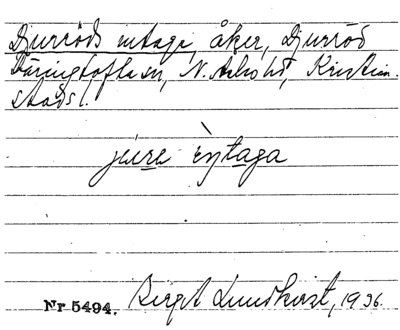 Djurröds intaga, åker, Djurröd
Däringtofta sn, N. Åsbo hd, Kristian-
stads l.
jʉ́rə ìntaga
Nr 5494. Birgit Lundkvist, 1936.